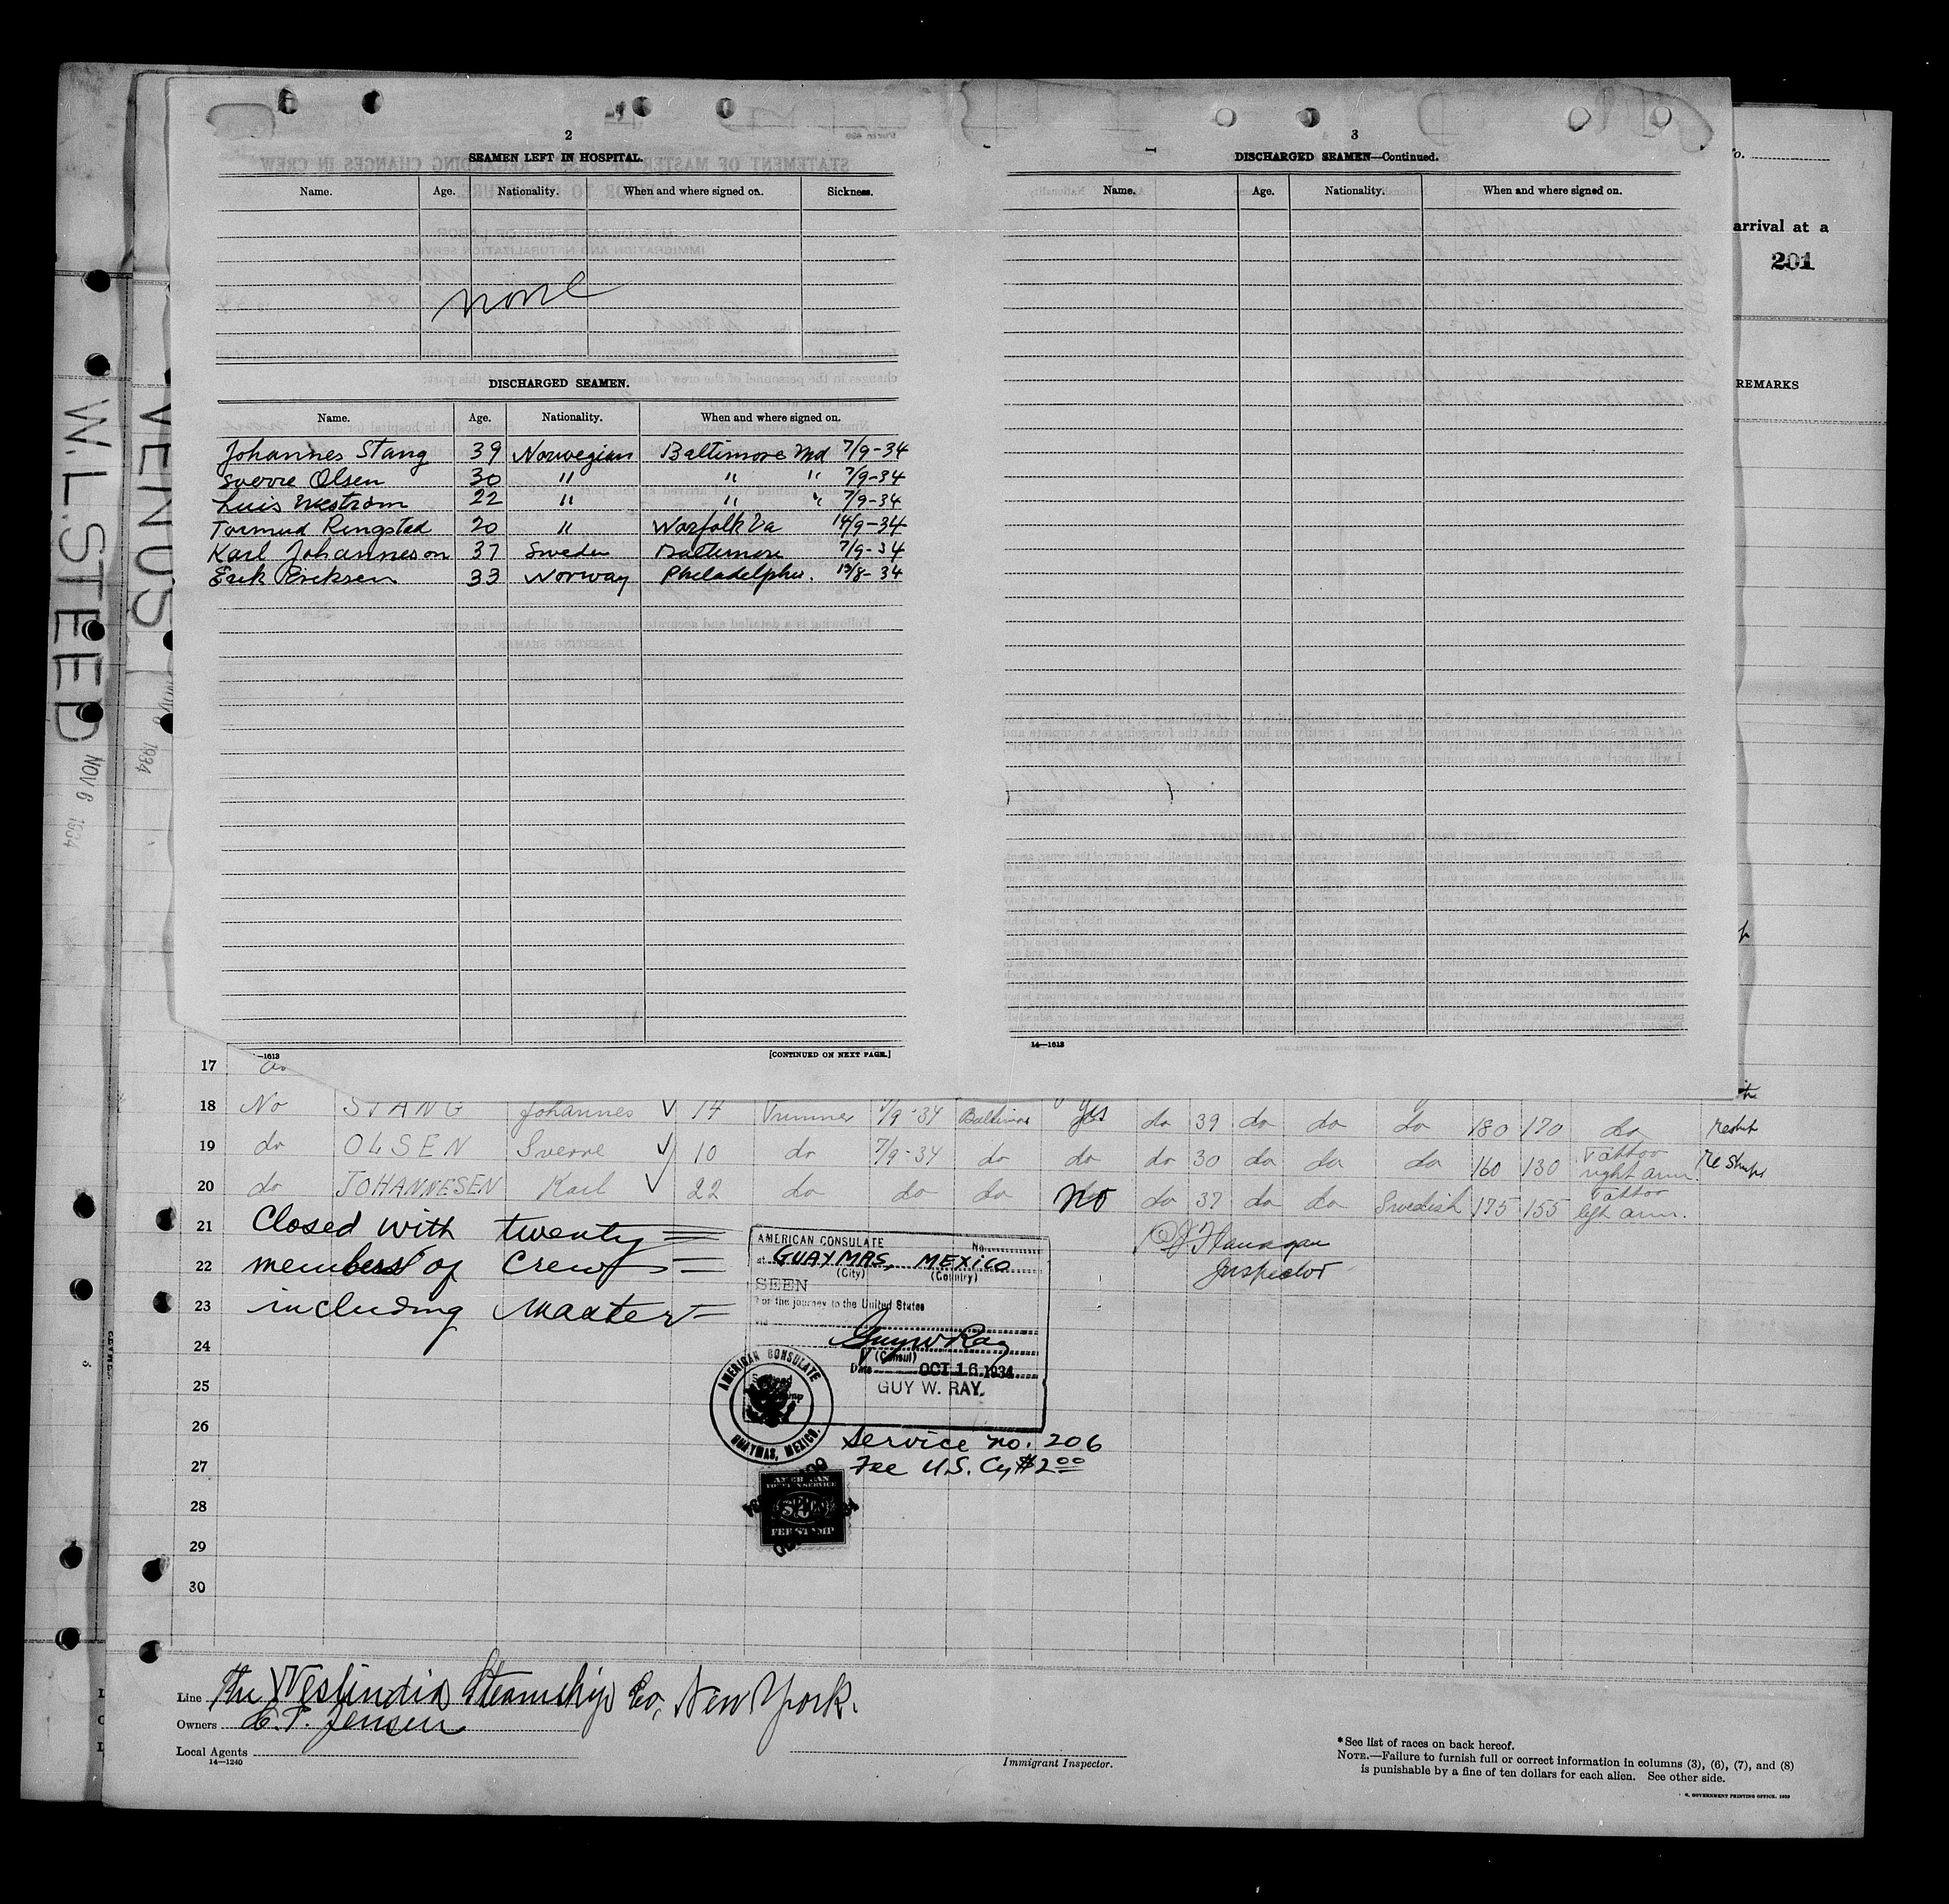 2
SEAMEN LEFT IN HOSPITAL.
Name. Age. Nationality. When and where signed on. Sickness.
none
DISCHARGED SEAMEN.
Name. Age. Nationality. When and where signed on.
Johannes Stang 39 Norwegian Baltimore Md 7/9-34
Sverre Olsen 30 " " " 7/9-34
Luis 22 " " " 7/9-34
Tormud Ringsted 20 " Norfolk Va 14/9-34
Karl Johanneson 37 Sweden Baltimore 7/9-34
Erik Eriksen 33 Norway Philadelphia. 8-34
—1613
[CONTINUED ON NEXT PAGE.]
3
DISCHARGED SEAMEN—Continued.
Name. Age. Nationality. When and where signed on.
14—1613
o.
arrival at a
201
REMARKS
W.L.STEED
NOV 6 1934
VENUS
1934
17
18 No STANG Johannes V 14 Trimmer 7/9-34 Baltimore Yes do 39 do do do 180 170 do
19 do OLSEN Sverre V 10 do 7/9-34 do do do 30 do do do 160 130 Tattoo right arm. Reships
20 do JOHANNESEN Karl V 22 do do do No do 37 do do Swedish 175 155 Tattoo left arm.
21 Closed with twenty
22 members of Crew
23 including Master
24
25
26
27
28
29
30
Flanagan
Inspector
AMERICAN CONSULATE No.
at GUAYMAS, MEXICO
(City) (Country)
SEEN
For the journey to the United States
Guy W Ray
(Consul)
Date OCT 16 1934
GUY W. RAY.
AMERICAN CONSULATE
GUAYMAS, MEXICO.
Service no. 206
Fee U.S. Cy $2.00
AMERICAN
FOREIGN SERVICE
FEE STAMP
Line The Westindia Steamship Co, New York.
Owners C.T. Jensen
Local Agents
14—1240
Immigrant Inspector.
*See list of races on back hereof.
NOTE.—Failure to furnish full or correct information in columns (3), (6), (7), and (8)
is punishable by a fine of ten dollars for each alien. See other side.
GOVERNMENT PRINTING OFFICE